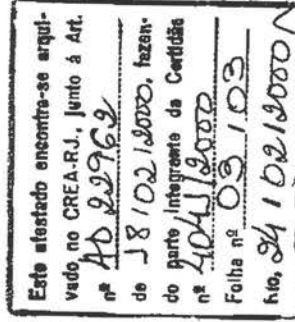 Este atestado encontra-se arqui-
vado no CREA-RJ., junto á Art.
nº AD 22962
de 18/02/2000, fazen-
do parte integrante da Certidão
nº 4041/2000
Folha nº 03/03
Rio, 24/02/2000